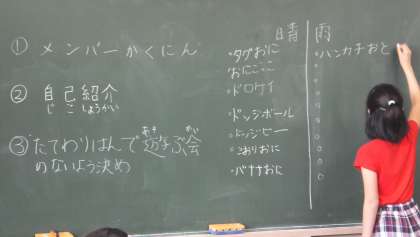 ① メンバーかくにん
② 自己紹介
じこしょうかい
③ たてわりはんで遊ぶ会
あそ かい
のないよう決め
晴
・タグおに
おにごっこ
・ドロケイ
・ドッジボール
・ドッジビー
・こおりおに
・バナナおに
雨
・ハンカチおと